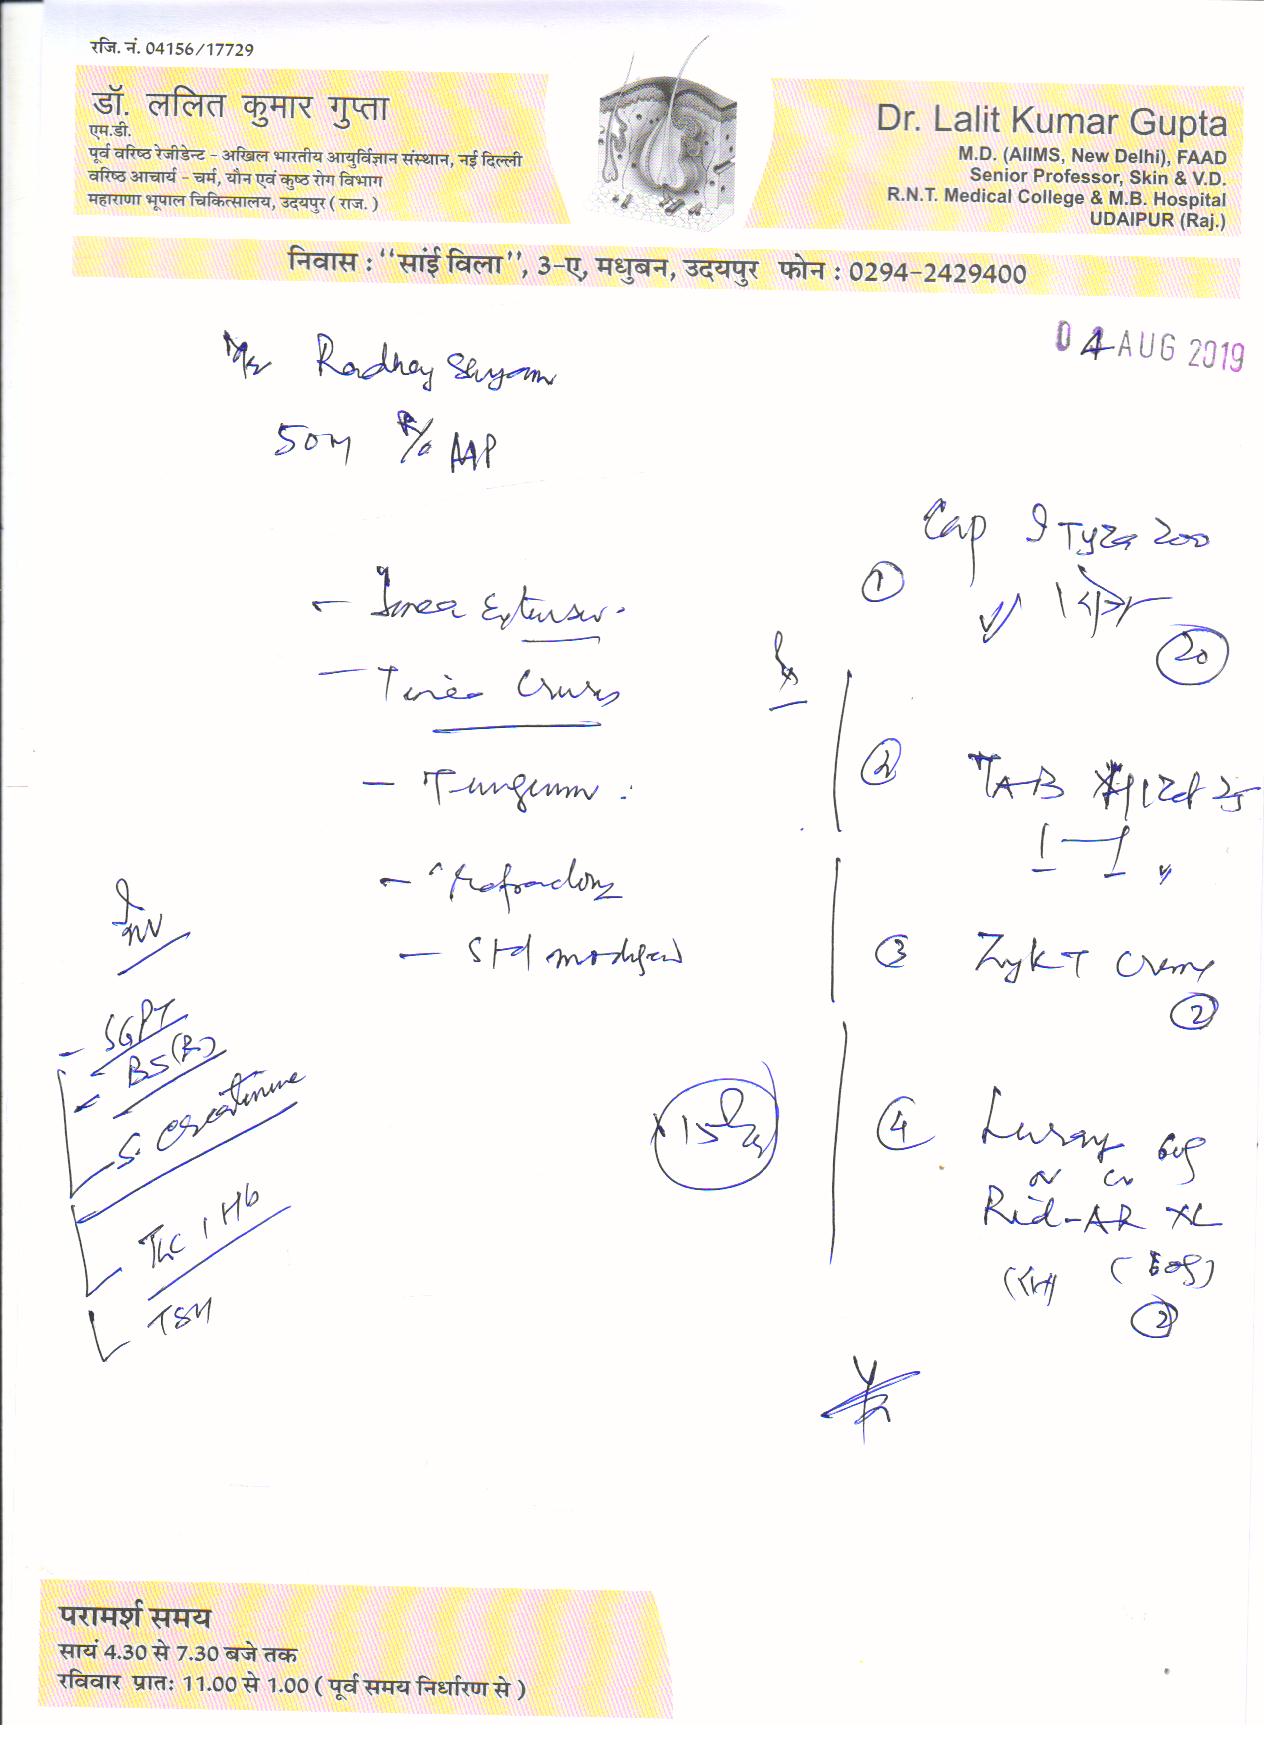 रजि. नं. 04156/17729
डॉ. ललित कुमार गुप्ता
एम.डी.
पूर्व वरिष्ठ रेजीडेन्ट - अखिल भारतीय आयुर्विज्ञान संस्थान, नई दिल्ली
वरिष्ठ आचार्य - चर्म, यौन एवं कुष्ठ रोग विभाग
महाराणा भूपाल चिकित्सालय, उदयपुर ( राज. )
Dr. Lalit Kumar Gupta
M.D. (AIIMS, New Delhi), FAAD
Senior Professor, Skin & V.D.
R.N.T. Medical College & M.B. Hospital
UDAIPUR (Raj.)
निवास : ‘‘सांई विला’’, 3-ए, मधुबन, उदयपुर फोन : 0294-2429400
04 AUG 2019
Mr Radhey Shyam
50M
- Tinea
- Tinea Cruris
- T
- 
- Std modified
Inv
- SGPT
- BS(R)
S. Creatinine
TLC / Hb
TSH
① Cap 200
20
② TAB 25
1-1
③ ZykT Creme
②
④ 60g
Rid-AR XL
(60g)
②
परामर्श समय
सायं 4.30 से 7.30 बजे तक
रविवार प्रातः 11.00 से 1.00 ( पूर्व समय निर्धारण से )